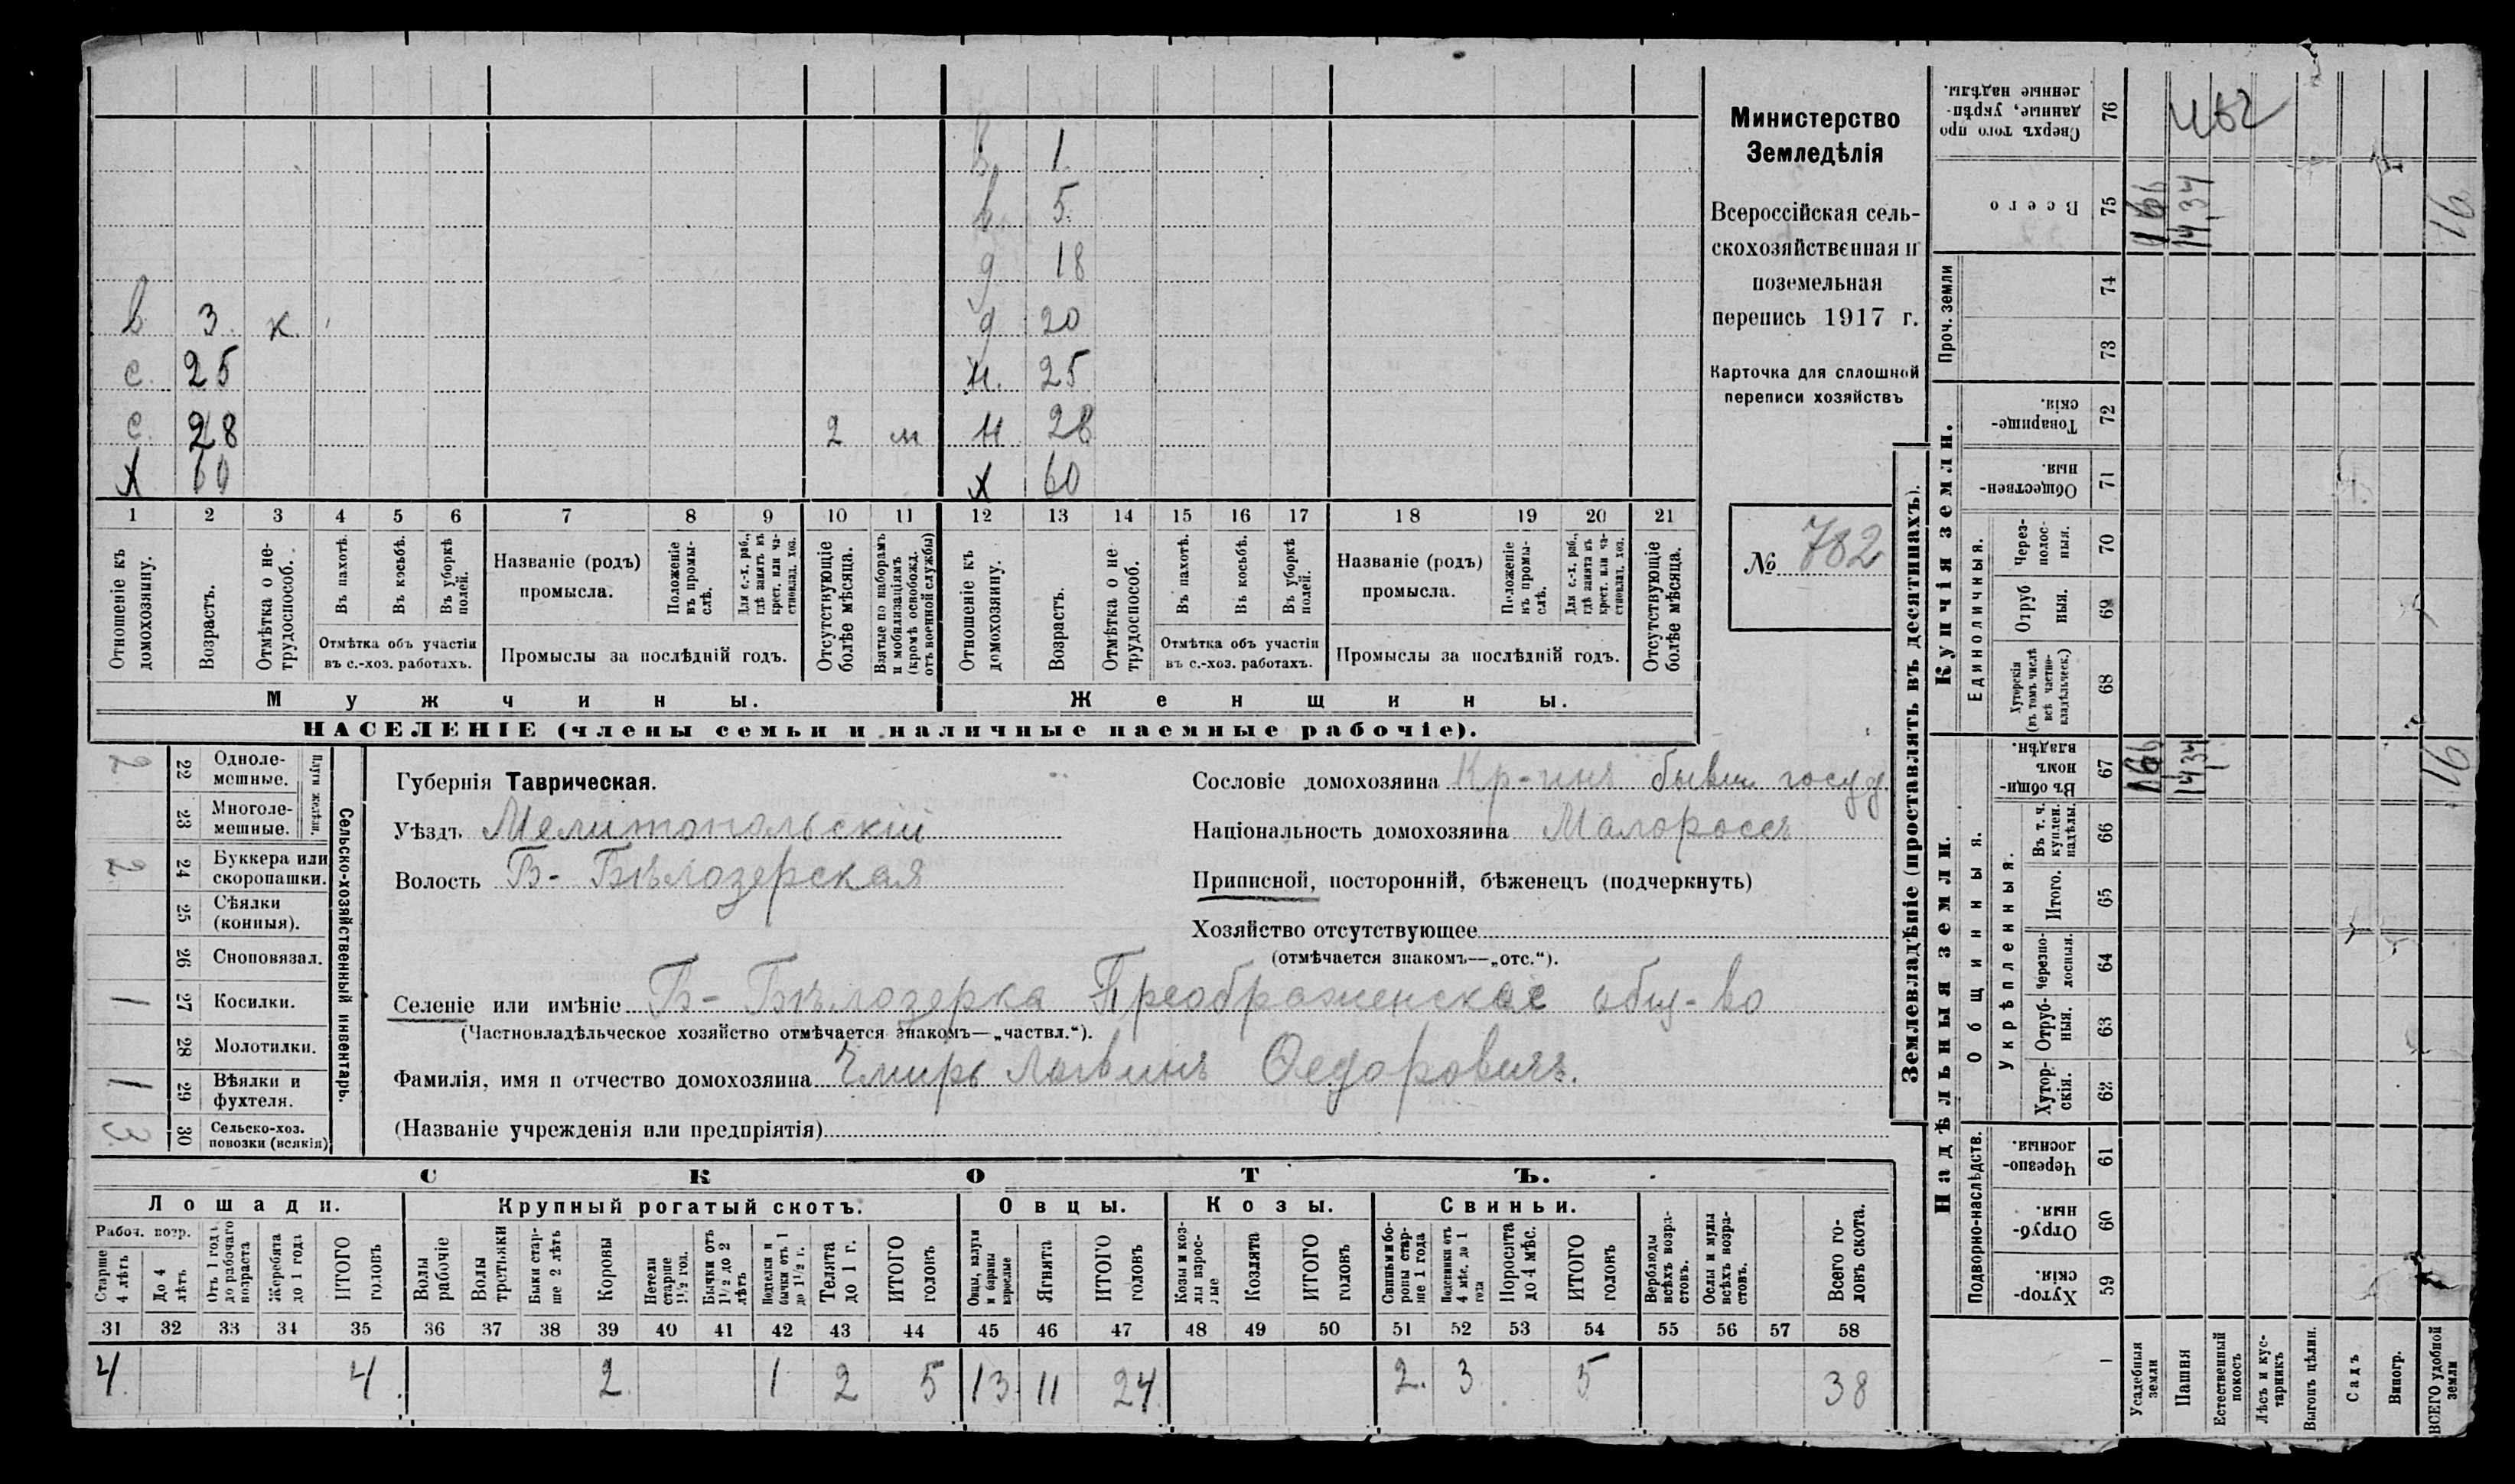 в 1
в 5
д 18
в 3 к д 20
с 25 н. 25
с 28 2 м н 28
х 60 х 60
1 2 3 4 5 6 7 8 9 10 11 12 13 14 15 16 17 18 19 20 21
Отношеніе къ домохозяину.
Возрастъ.
Отмѣтка о нетрудоспособ.
Въ пахотѣ.
Въ косьбѣ.
Въ уборкѣ полей.
Отмѣтка объ участіи
въ с.-хоз. работахъ.
Названіе (родъ)
промысла.
Положеніе въ промыслѣ.
Для с.-х. раб., гдѣ занятъ въ крест. или частновлад. хоз.
Промыслы за послѣдній годъ.
Отсутствующіе болѣе мѣсяца.
Взятые по наборамъ и мобилизаціямъ (кромѣ освобожд. отъ военной службы)
Отношеніе къ домохозяину.
Возрастъ.
Отмѣтка о не трудоспособ.
Въ пахотѣ.
Въ косьбѣ.
Въ уборкѣ полей.
Отмѣтка объ участіи
въ с.-хоз. работахъ.
Названіе (родъ)
промысла.
Положеніе въ промыслѣ.
Для с.-х. раб., гдѣ занята въ крест. или частновлад. хоз.
Промыслы за послѣдній годъ.
Отсутствующіе болѣе мѣсяца.
Мужчины. Женщины.
НАСЕЛЕНІЕ (члены семьи и наличные наемные рабочіе).
Министерство
Земледѣлія
Всероссійская сель-
скохозяйственная и
поземельная
перепись 1917 г.
Карточка для сплошной
переписи хозяйствъ
№ 782
Сельско-хозяйственный инвентарь.
Плуги желѣзн.
2 22 Однолемешные.
23 Многолемешные.
2 24 Буккера или скоропашки.
25 Сѣялки (конныя).
26 Сноповязал.
1 27 Косилки.
28 Молотилки.
1 29 Вѣялки и фухтеля.
3 30 Сельско-хоз. повозки (всякія)
Губернія Таврическая.
Уѣздъ Мелитопольскій
Волость Б- Бѣлозерская
Сословіе домохозяина Кр-инъ бывш госуд.
Національность домохозяина Малороссъ
Приписной, посторонній, бѣженецъ (подчеркнуть)
Хозяйство отсутствующее
(отмѣчается знакомъ—„отс.“).
Селеніе или имѣніе Б- Бѣлозерка Преображенское общ-во
(Частновладѣльческое хозяйство отмѣчается знакомъ—„частвл.“).
Фамилія, имя и отчество домохозяина Чмирь Логвинъ Федоровичъ.
(Названіе учрежденія или предпріятія)
СКОТЪ.
Лошади. Крупный рогатый скотъ. Овцы. Козы. Свиньи.
Рабоч. возр.
Старше 4 лѣтъ
До 4 лѣтъ
Отъ 1 года до рабочаго возраста
Жеребята до 1 года
ИТОГО головъ
Волы рабочіе
Волы третьяки
Быки старше 2 лѣтъ
Коровы
Нетели старше 1½ год.
Бычки отъ 1½ до 2 лѣтъ
Подтелки и бычки отъ 1 до 1½ г.
Телята до 1 г.
ИТОГО головъ
Овцы, валухи и бараны взрослые
Ягнята
ИТОГО головъ
Козы и козлы взрослые
Козлята
ИТОГО головъ
Свиньи и боровы старше 1 года
Подсвинки отъ 4 мѣс. до 1 года
Поросята до 4 мѣс.
ИТОГО головъ
Верблюды всѣхъ возрастовъ.
Ослы и мулы всѣхъ возрастовъ.
Всего головъ скота.
31 32 33 34 35 36 37 38 39 40 41 42 43 44 45 46 47 48 49 50 51 52 53 54 55 56 57 58
4 4 2 1 2 5 13 11 24 2 3 5 38
Землевладѣніе (проставлять въ десятинахъ).
Надѣльныя земли.
Купчія земли.
Проч. земли
Подворно-наслѣдств.
Общинныя.
Укрѣпленныя.
Единоличныя.
Сверхъ того проданные, укрѣпленные надѣлы. 76
Всего 75 1,66 14,34 16
74
73
Товарищескія. 72
Общественныя. 71
Черезполосныя. 70
Отрубныя. 69
Хуторскія (въ томъ числѣ всѣ частновладѣльческ.) 68
Въ общинномъ владѣн. 67 1,66 14,34 16
Въ т. ч. куплен. надѣлы. 66
Итого. 65
Черезполосныя. 64
Отрубныя. 63
Хуторскія. 62
Черезполосныя. 61
Отрубныя. 60
Хуторскія. 59
1
Усадебныя земли
Пашня
Естественный покосъ
Лѣсъ и кустарникъ
Выгонъ цѣлин.
Садъ
Виногр.
ВСЕГО удобной земли